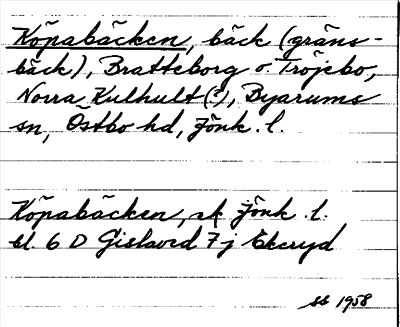 Köpabäcken, bäck (gräns-
bäck), Bratteborg o. Tröjebo,
Norra Kulhult(?), Byarums
sn, Östbo hd, Jönk. l.
Köpabäcken, ek Jönk. l.
bl. 6 D Gislaved 7j Ekeryd
ss 1958